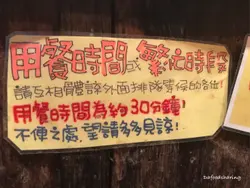 用餐時間或繁忙時段
請互相體諒外面排隊等候的各位!
用餐時間為約30分鐘!
不便之處,望請多多見諒!